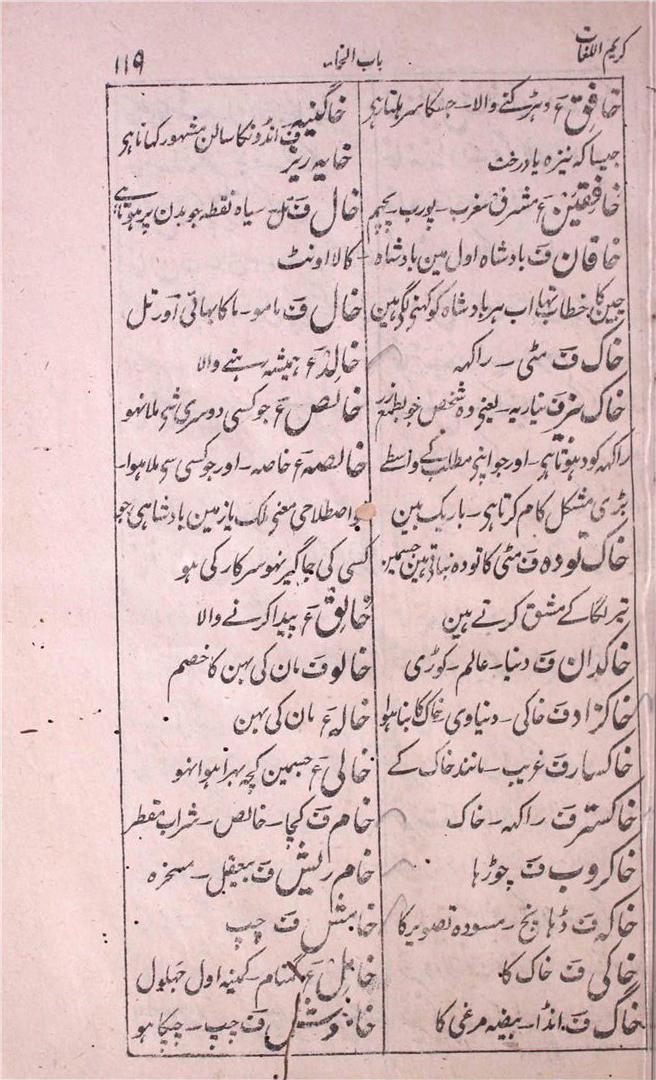 کریم اللغات
باب الخاء
۱۱۹
خافِق ع دھڑکنے والا۔ جسکا سر ہلتا ہی
جیسا کہ نیزہ یا درخت
خافِقَین ع مشرق مغرب۔ پورب۔ پچھم
خاقان ف بادشاہ اول مین بادشاہ
چین کا خطاب تہا اب ہر بادشاہ کو کہنی لگی ہین
خاک ف مٹی۔ راکہہ
خاک ف نیاریہ۔ یعنی وہ شخص جو بطمع زر
راکہہ کو دہوتا ہی۔ اور جو اپنی مطلب کے واسطے
بڑی مشکل کام کرتا ہی۔ باریک بین
خاک تودہ ف مٹی کا تودہ بناتی ہین جسمین
تیر لگا کے مشق کرتے ہین
خاکدان ف دنیا۔ عالم۔ کوڑی
خاکزاد ف خاکی۔ دنیاوی خاک کا بنا ہوا
خاکسار ف غریب۔ مانند خاک کے
خاکستر ف راکہہ۔ خاک
خاکروب ف چوڑہا
خاکہ ف ڈہانچ۔ مسودہ تصویر کا
خاکی ف خاک کا
خاگ ف انڈا۔ بیضہ مرغی کا
خاگینہ ف انڈونکا سالن مشہور کہانا ہی
خایہ ریز
خال ف تل۔ سیاہ نقطہ جو بدن پر ہوتا ہے
کالا اونٹ
خال ف مامو۔ ما کا بہائی اور تل
خالِد ع ہمیشہ رہنے والا
خالص ع جو کسی دوسری شی ملا نہو
خالصہ ع خاصہ۔ اور جو کسی سی ملا ہوا۔
اصطلاحی معنی ملک یا زمین بادشاہی جو
کسی کی جاگیر نہو سرکار کی ہو
خالِق ع پیدا کرنے والا
خالو ف مان کی بہن کا خصم
خالہ ع مان کی بہن
خالی ع جسمین کچہ بہرا ہوا نہو
خام ف کچا۔ خالص۔ شراب مقطر
خام ریش ف بیعقل۔ مسخرہ
خامش ف چپ
خامِل ع گمنام۔ کمینہ اول جہلول
ف چپ۔ چپکا ہو